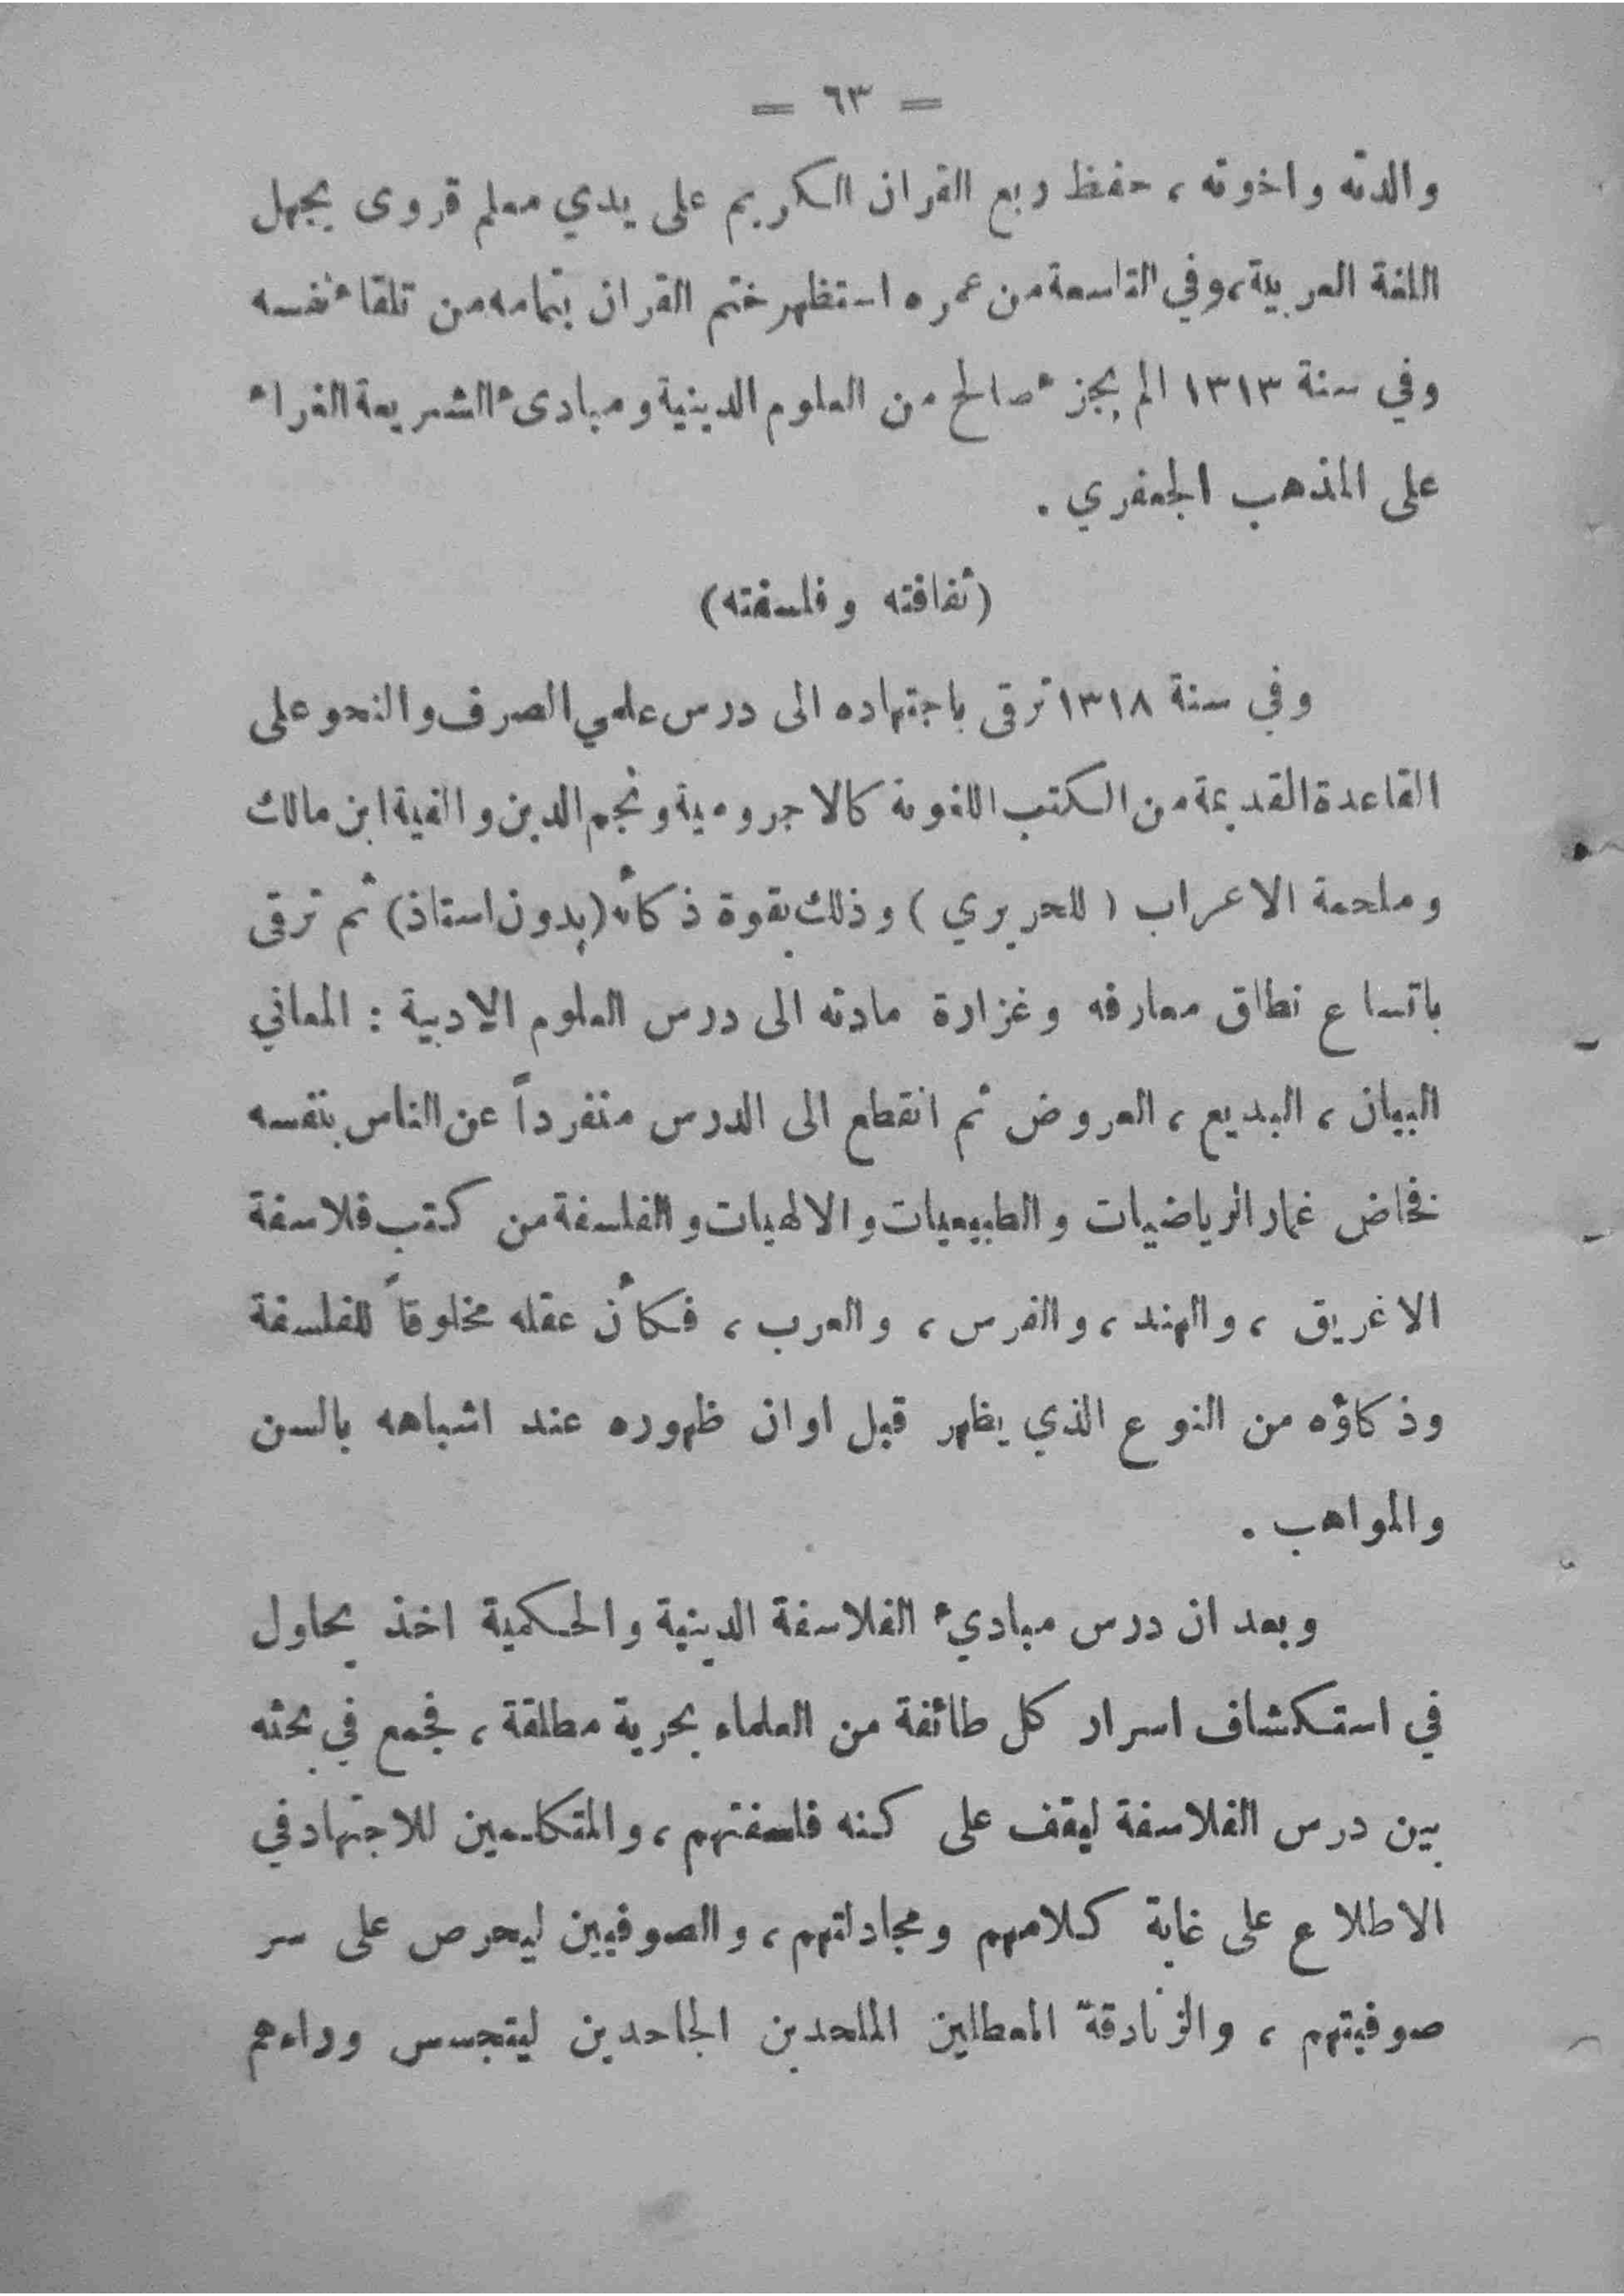 = ٦٣ =
والدته واخوته ، حفظ ربع القران الكريم على يدي معلم قروى يجهل
اللغة العربية، وفي التاسعة من عمره استظهر ختم القران بتمامه من تلقاء نفسه
وفي سنة ١٣١٣ الم بجزء صالح من العلوم الدينية ومبادىء الشريعة الغراء
على المذهب الجعفري .
(ثفافته وفلسفته)
وفي سنة ١٣١٨ ترقى باجتهاده الى درس علمي الصرف والنحو على
القاعدة القديمة من الكتب اللغوية كالاجرومية ونجم الدين والفية ابن مالك
وملحمة الاعراب ( للحريري ) وذلك بقوة ذكائه (بدون استاذ) ثم ترقى
باتساع نطاق معارفه وغزارة مادته الى درس العلوم الادبية : المعاني
البيان ، البديع ، العروض ثم انقطع الى الدرس منفرداً عن الناس بنفسه
فخاض غمار الرياضيات والطبيعيات والالهيات والفلسفة من كتب فلاسفة
الاغريق ، والهند ، والفرس ، والعرب ، فكأن عقله مخلوقاً للفلسفة
وذكاؤه من النوع الذي يظهر قبل اوان ظهوره عند اشباهه بالسن
والمواهب .
وبعد ان درس مباديء الفلاسفة الدينية والحكمية اخذ يحاول
في استكشاف اسرار كل طائفة من العلماء بحرية مطلقة ، فجمع في بحثه
بين درس الفلاسفة ليقف على كنه فلسفتهم ، والمتكلمين للاجتهاد في
الاطلاع على غاية كلامهم ومجادلتهم ، والصوفيين ليحرص على سر
صوفيتهم ، والزنادقة المعطلين الملحدين الجاحدين ليتجسس وراءهم